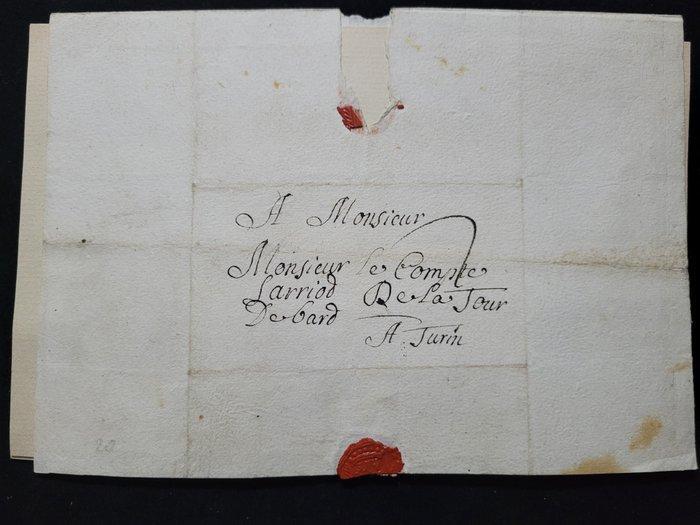 A Monsieur
Monsieur Le Compte
Larriod De La Tour
De bard
A Turin